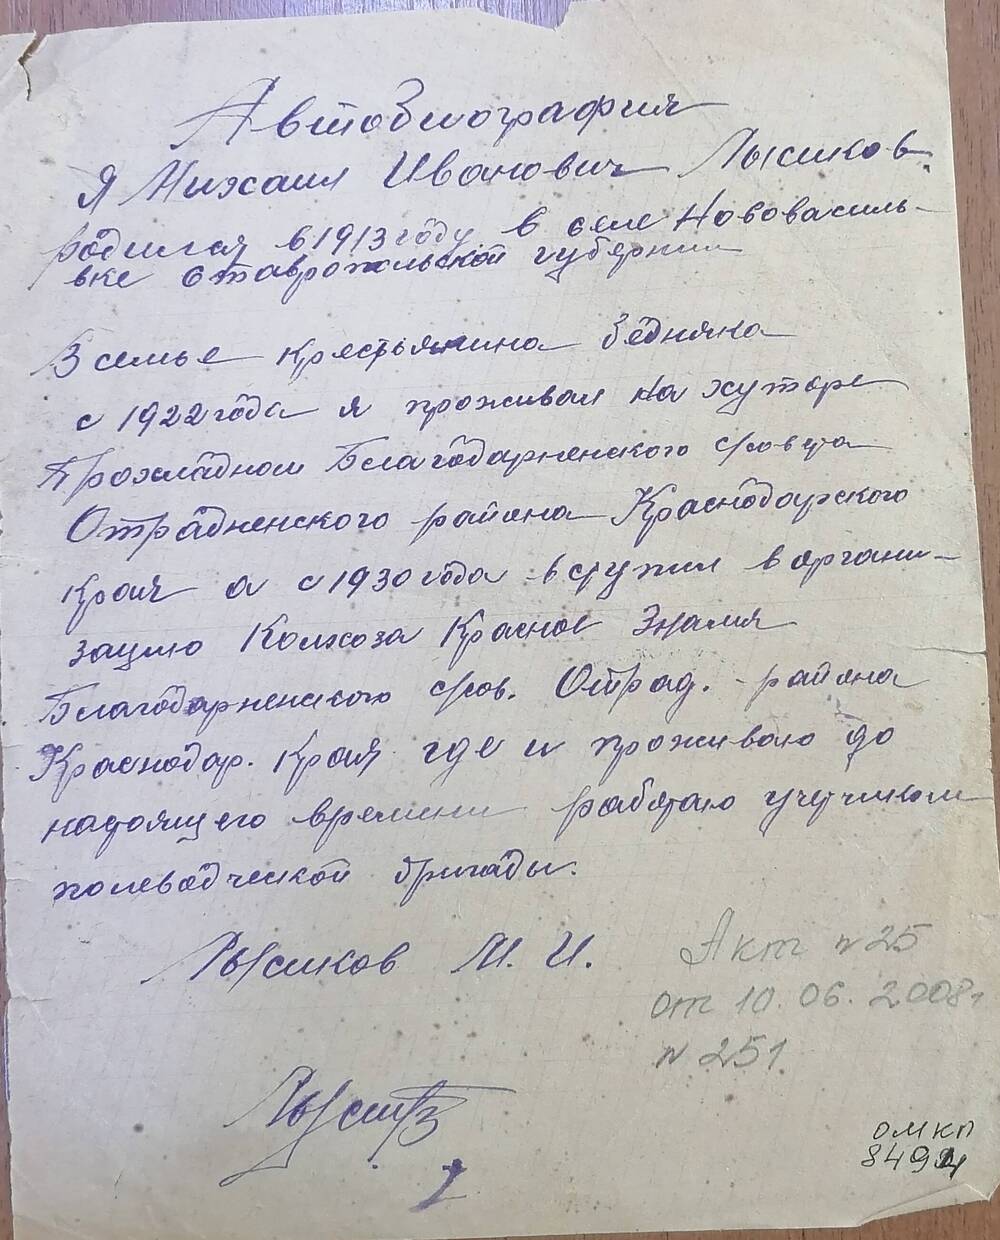 Автобиография
Я Михаил Иванович Лысиков.
родился в 1913 году в селе Нововасиль-
вке Ставропольской губернии
В семье крестьянина бедняка
с 1922 года я проживал на хуторе
Прохладном Благодарненского с/совета
Отрадненского района Краснодарского
края а с 1930 года вступил в органи-
зацию Колхоза Красное Знамя
Благодарненского с/сов. Отрад. района
Краснодар. края где и проживаю до
настоящего времени работаю учетчиком
полеводческой бригады.
Лысиков М. И.
Акт N 25
от 10.06.2008г
N 251.
ОМКП